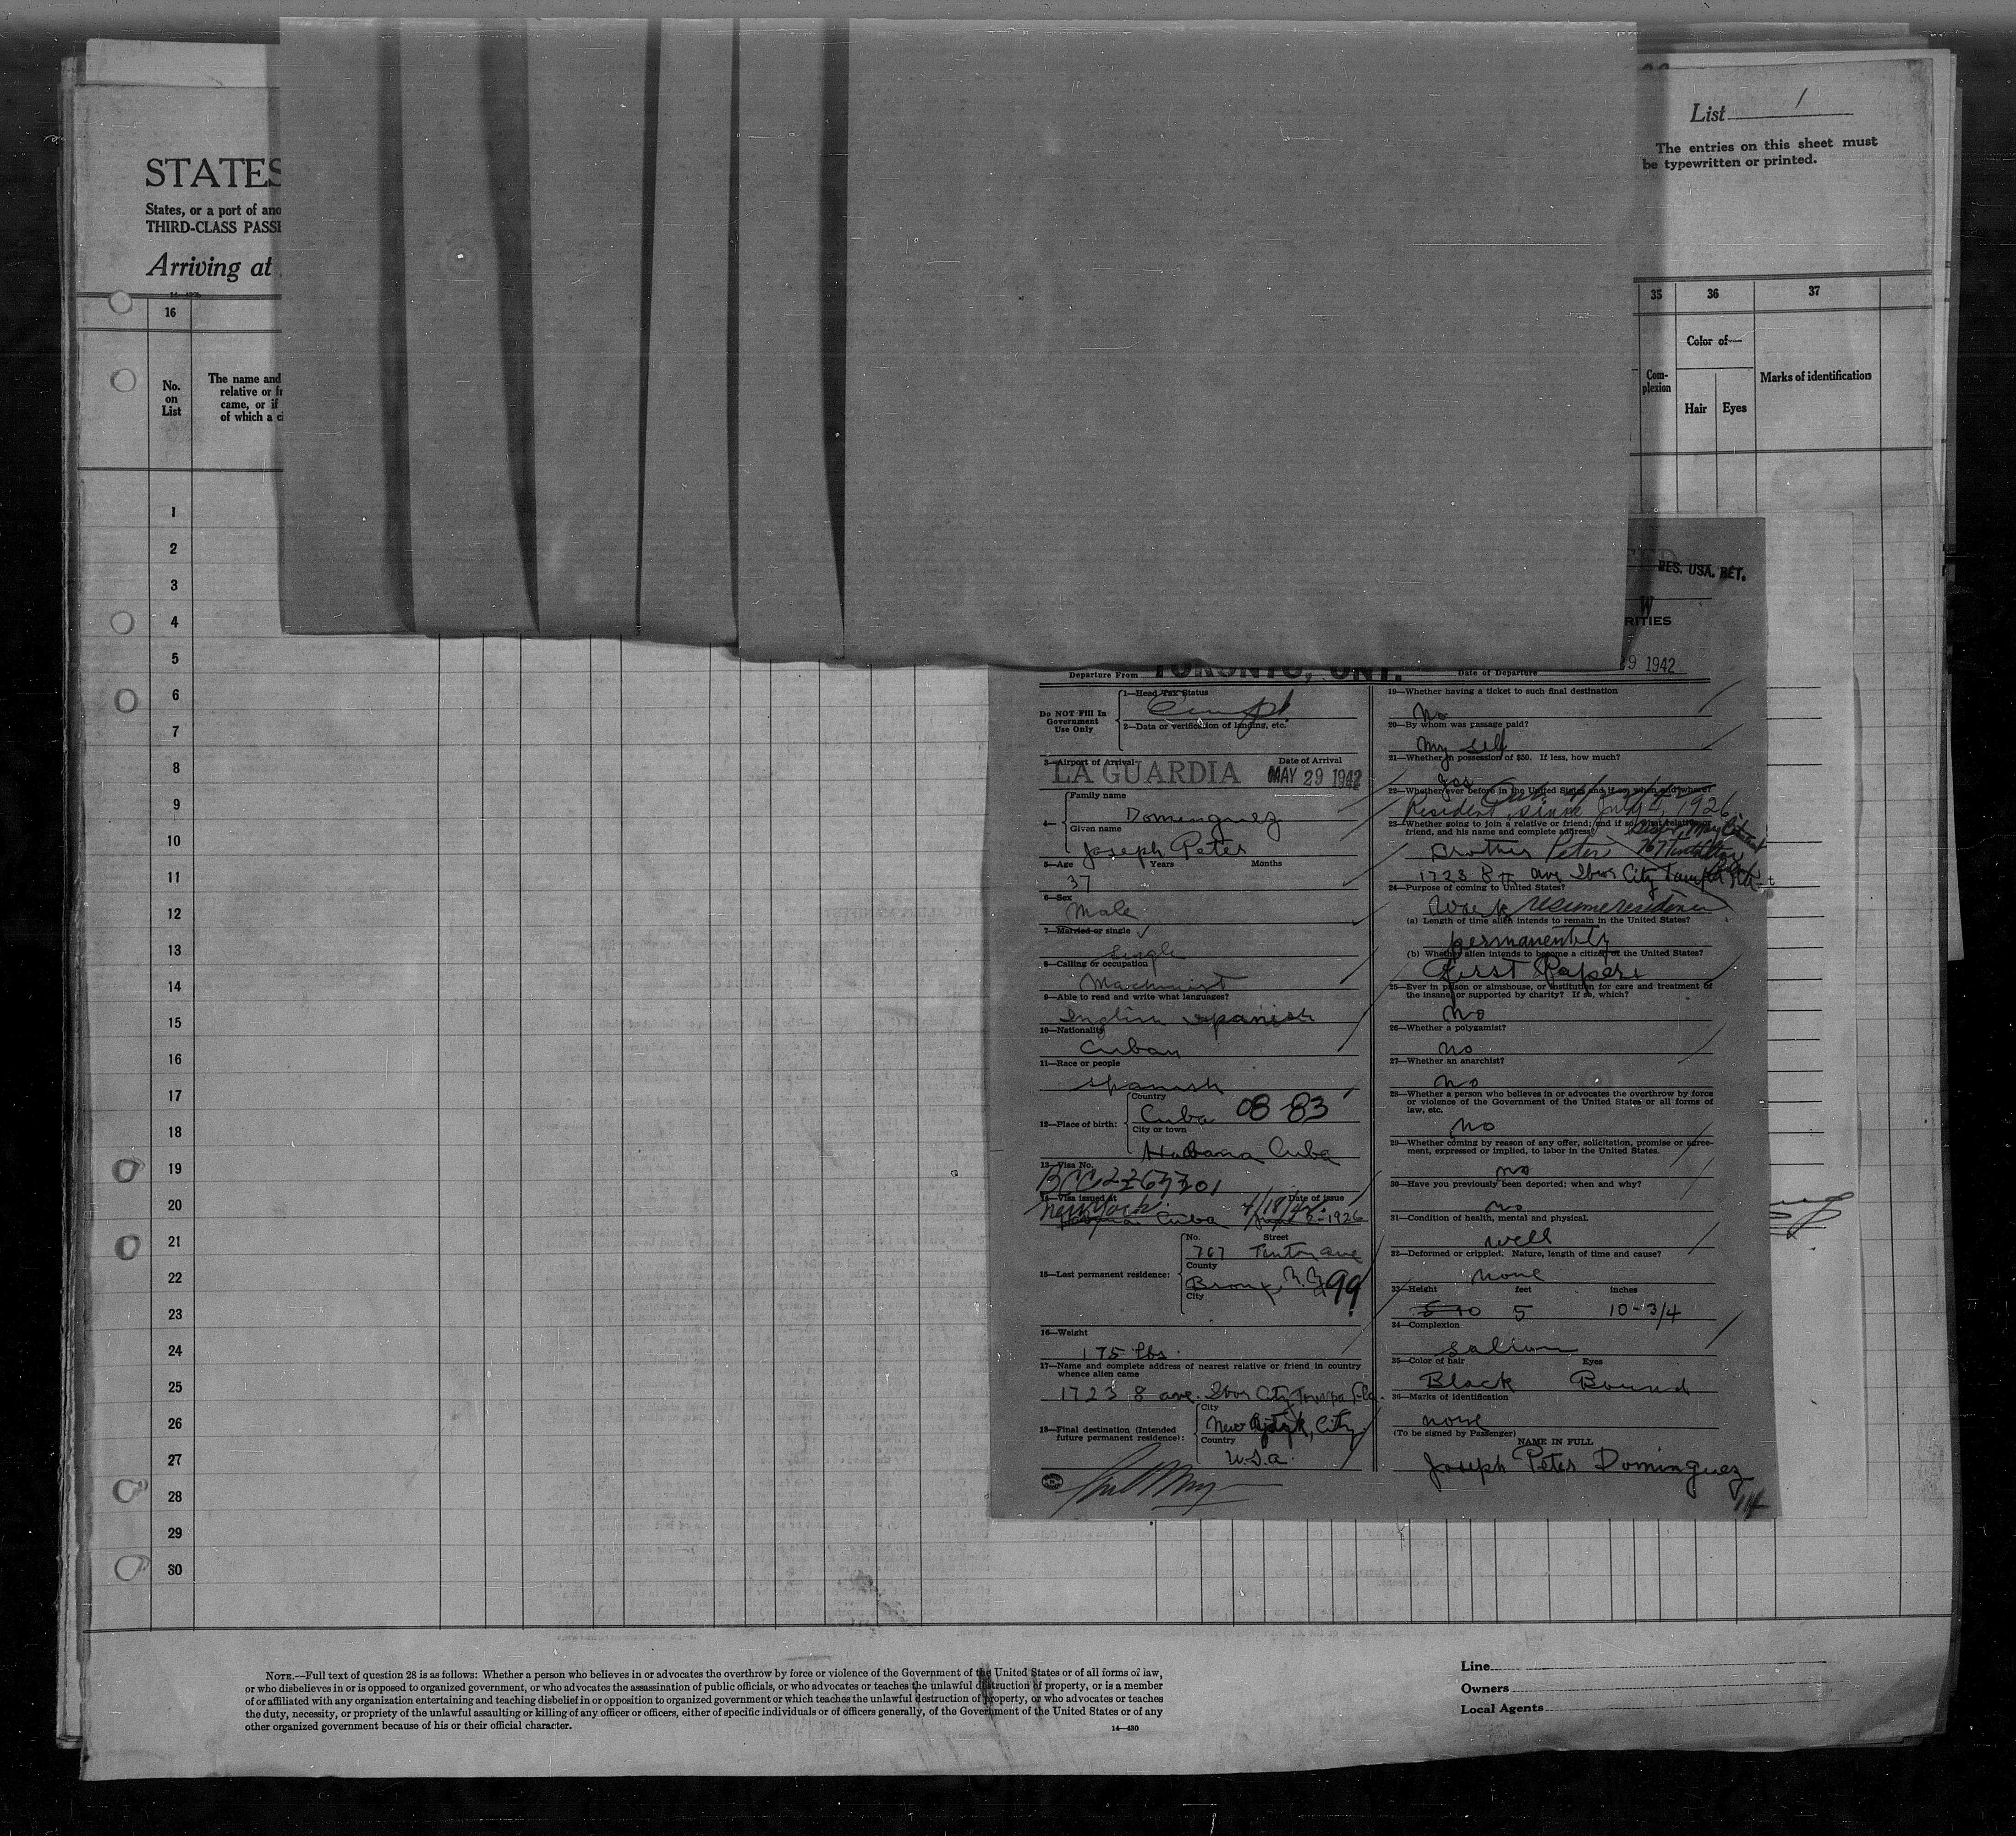 List 1
The entries on this sheet must
be typewritten or printed.
STATES
States, or a port of ano
THIRD-CLASS PASSE
Arriving at
16
35 36 37
No.
on
List
The name and
relative or fr
came, or if
of which a ci
Com-
plexion
Color of—
Hair Eyes
Marks of identification
1
2
3
4
5
6
7
8
9
10
11
12
13
14
15
16
17
18
19
20
21
22
23
24
25
26
27
28
29
30
RES. USA. RET.
W
RITIES
Departure From TORONTO, ONT.
Date of Departure 29 1942
Do NOT Fill In
Government
Use Only
1—Head Tax Status
2—Data or verification of landing, etc.
3—Airport of Arrival Date of Arrival
LA GUARDIA MAY 29 1942
4—
Family name
Domenguez
Given name
Joseph Peter
5—Age Years Months
37
6—Sex
Male
7—Married or single
Single
8—Calling or occupation
Machinist
9—Able to read and write what languages?
English Spanish
10—Nationality
Cuban
11—Race or people
Spanish
12—Place of birth:
Country
Cuba 08-83
City or town
Habana Cuba
13—Visa No.
14—Visa issued at Date of issue
New York 4/18/42
Cuba 1926
15—Last permanent residence:
No. Street
767 Tinton ave
County
Bronx, N.Y. 99
City
16—Weight
175 lbs.
17—Name and complete address of nearest relative or friend in country
whence alien came
1723 8 ave. Ibor City Tampa Fla.
18—Final destination (Intended
future permanent residence):
City
New York, City
Country
U.S.a.
19—Whether having a ticket to such final destination
No
20—By whom was passage paid?
My self
21—Whether in possession of $50. If less, how much?
22—Whether ever before in the United States and if so, when and where?
Resident since July 4 1926
23—Whether going to join a relative or friend; and if so, what relative or
friend, and his name and complete address
Brother Peter
1723 8 ave Ibor City Tampa Fla
24—Purpose of coming to United States?
Work resume residence
(a) Length of time alien intends to remain in the United States?
permanently
(b) Whether alien intends to become a citizen of the United States?
First Papers
25—Ever in prison or almshouse, or institution for care and treatment of
the insane, or supported by charity? If so, which?
no
26—Whether a polygamist?
no
27—Whether an anarchist?
no
28—Whether a person who believes in or advocates the overthrow by force
or violence of the Government of the United States or all forms of
law, etc.
no
29—Whether coming by reason of any offer, solicitation, promise or agree-
ment, expressed or implied, to labor in the United States.
no
30—Have you previously been deported; when and why?
no
31—Condition of health, mental and physical.
well
32—Deformed or crippled. Nature, length of time and cause?
none
33—Height feet inches
5 10-3/4
34—Complexion
35—Color of hair Eyes
Black
36—Marks of identification
none
(To be signed by Passenger)
NAME IN FULL
Joseph Peter Dominguez
NOTE.—Full text of question 28 is as follows: Whether a person who believes in or advocates the overthrow by force or violence of the Government of the United States or of all forms of law,
or who disbelieves in or is opposed to organized government, or who advocates the assassination of public officials, or who advocates or teaches the unlawful destruction of property, or is a member
of or affiliated with any organization entertaining and teaching disbelief in or opposition to organized government or which teaches the unlawful destruction of property, or who advocates or teaches
the duty, necessity, or propriety of the unlawful assaulting or killing of any officer or officers, either of specific individuals or of officers generally, of the Government of the United States or of any
other organized government because of his or their official character.
14—430
Line
Owners
Local Agents